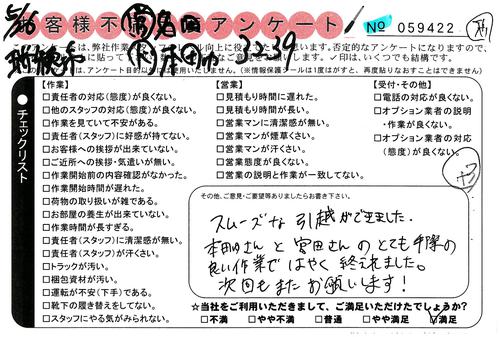 お客様不満
アンケート
No 059422
5/6
3239
チェックリスト
【作業】
□責任者の対応(態度)が良くない。
□他のスタッフの対応(態度)が良くない。
□作業を見ていて不安がある。
□責任者(スタッフ)に好感が持てない。
□お客様への挨拶が出来ていない。
□ご近所への挨拶・気遣いが無い。
□作業開始前の内容確認がなかった。
□作業開始時間が遅れた。
□荷物の取り扱いが雑である。
□お部屋の養生が出来ていない。
□作業時間が長すぎる。
□責任者(スタッフ)に清潔感が無い。
□責任者(スタッフ)が汗くさい。
□トラックが汚い。
□梱包資材が汚い。
□運転が不安(下手)である。
□靴下の履き替えをしてない。
□スタッフにやる気がみられない。
【営業】
□見積もり時間に遅れた。
□見積もり時間が長い。
□営業マンに清潔感が無い。
□営業マンが煙草くさい。
□営業マンが汗くさい。
□営業態度が良くない。
□営業の説明と作業が一致してない。
【受付・その他】
□電話の対応が良くない。
□オプション業者の説明
・作業が良くない。
□オプション業者の対応
(態度)が良くない。
その他、ご意見・ご要望等ありましたらお書き下さい。
スムーズな引越ができました.
本田さんと宮田さんのとても手際の
良い作業ではやく終えれました。
次回もまたお願いします!
☆当社をご利用いただきまして、ご満足いただけたでしょうか?
□不満 □やや不満 □普通 □やや満足 ☑満足